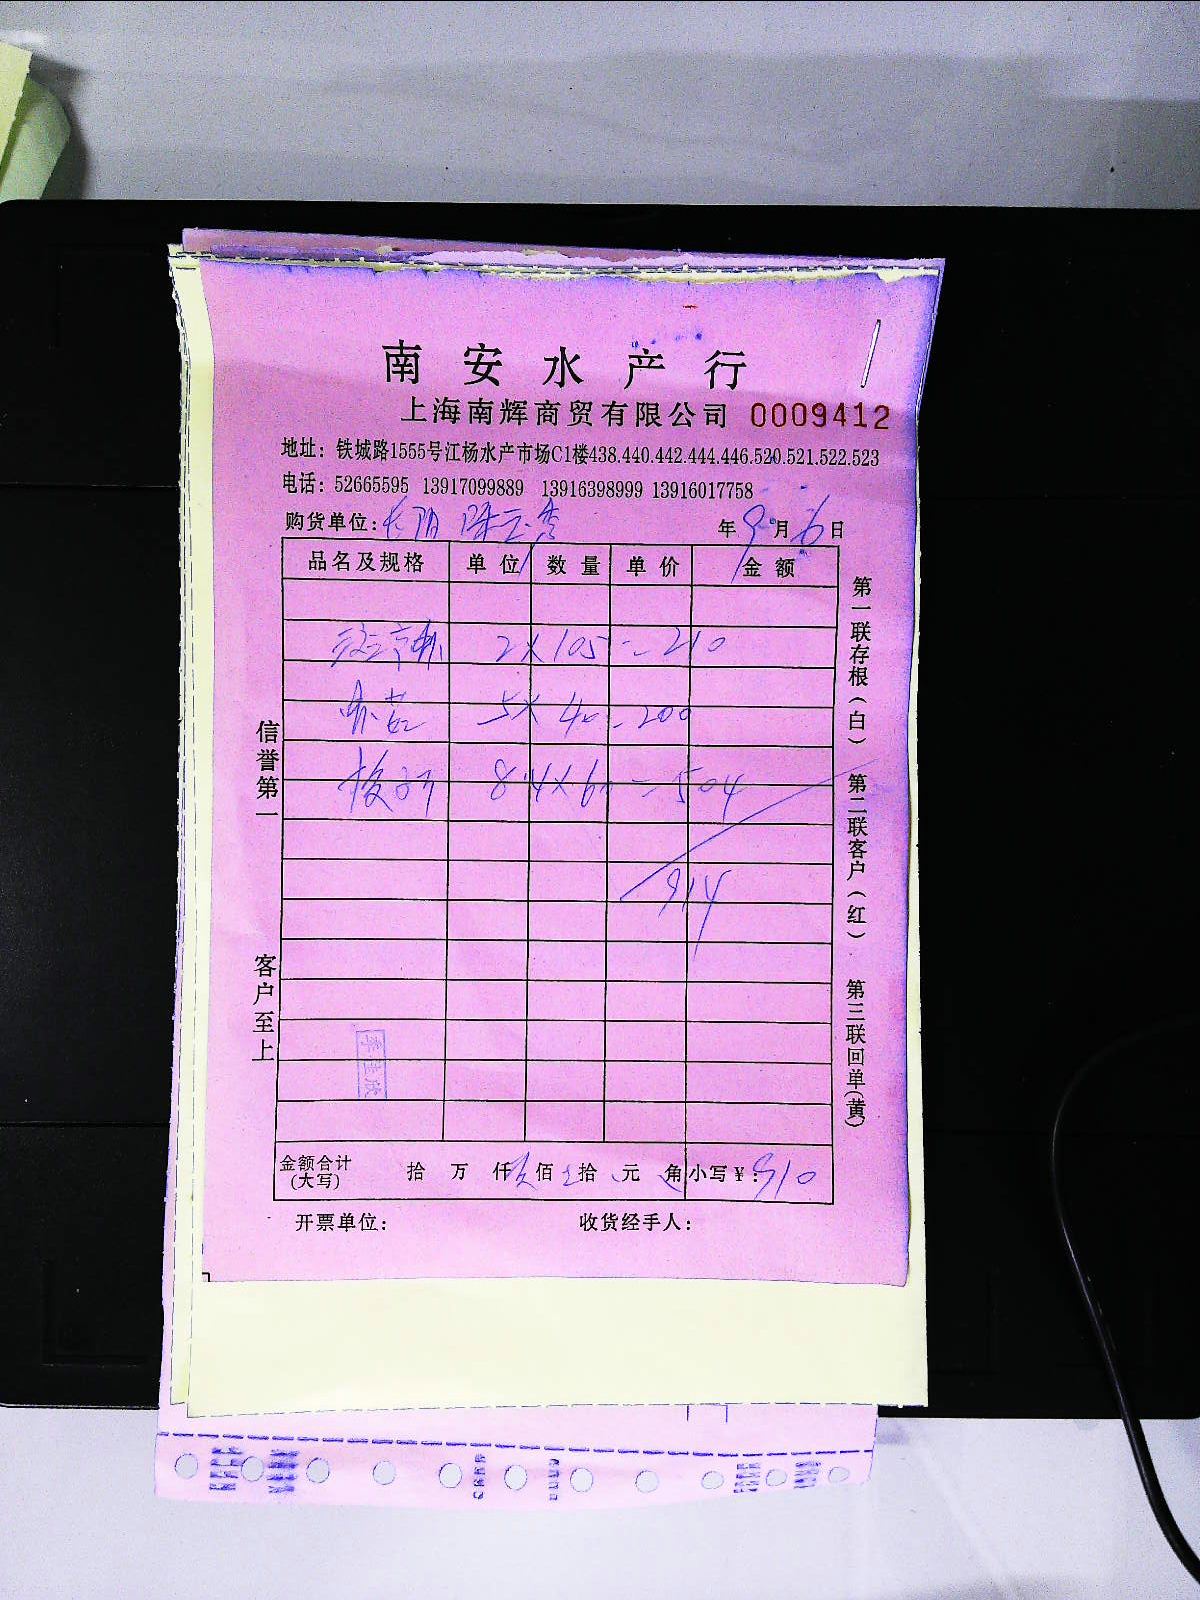 南安水产行
上海南辉商贸有限公司 0009412
地址：铁城路1555号江杨水产市场C1楼438.440.442.444.446.520.521.522.523
电话：52665595 13917099889 13916398999 13916017758
购货单位： 年9月6日
品名及规格 单位 数量 单价 金额
2×105=210
5×40=200
梭子 8.4×60=504
914
金额合计(大写) 拾 万 仟玖佰 拾 元 角 小写￥：910
开票单位： 收货经手人：
信誉第一
客户至上
第一联存根（白）
第二联客户（红）
第三联回单（黄）